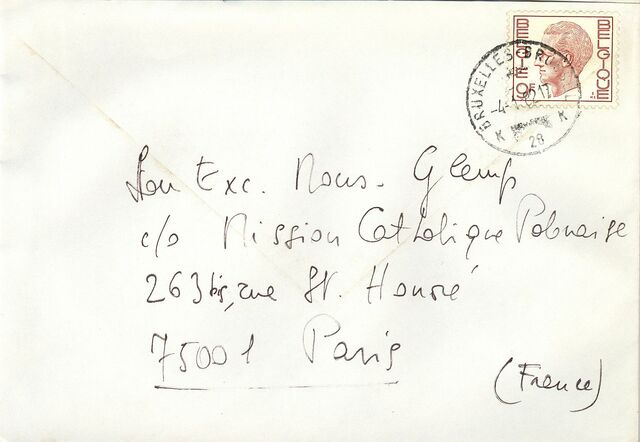 BELGIE BELGIQUE
9F
BRUXELLES BRUSSEL
K K
28
Son Exc. Mons. Glemp
c/o Mission Catholique Polonaise
263 bis, rue St. Honoré
75001 Paris
(France)